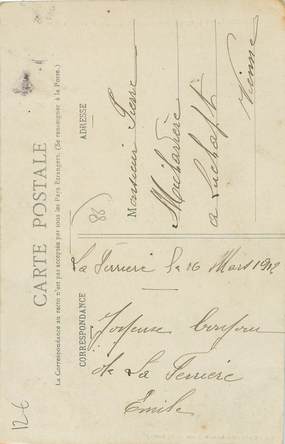 CARTE POSTALE
La Correspondance au recto n'est pas acceptée par tous les Pays Étrangers. (Se renseigner à la Poste.)
CORRESPONDANCE
ADRESSE
La Ferriere le 16 Mars 1912
Joyeuse bonjour
de La Ferriere
Emile
(86)
Monsieur Pierre
à Luchapt
Vienne
126